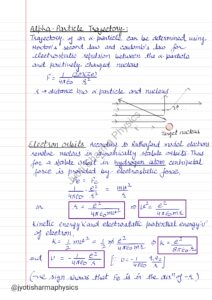 Alpha-Particle Trajectory:
Trajectory of an α particle can be determined using
Newton's second law and coulomb's law for
electrostatic repulsion between the α-particle
and positively charged nucleus
F = 1/4πε₀ (2e)(Ze)/r²
r → distance b/w α particle and nucleus
target nucleus
Electron orbits According to Rutherford model electrons
revolve nucleus in dynamically stable orbits. Thus
for a stable orbit in hydrogen atom centripetal
force is provided by electrostatic force,
Fe = Fc
1/4πε₀ e²/r² = mv²/r
or r = e²/4πε₀mv² ⇒ v² = e²/4πε₀mr
kinetic energy K and electrostatic potential energy 'U'
of electron
K = 1/2 mv² = 1/2 e²/4πε₀r K = e²/8πε₀r
and U = -1/4πε₀ e²/r
(-ve sign shows that Fe is in the dirⁿ of -r)
@jyotisharmaphysics